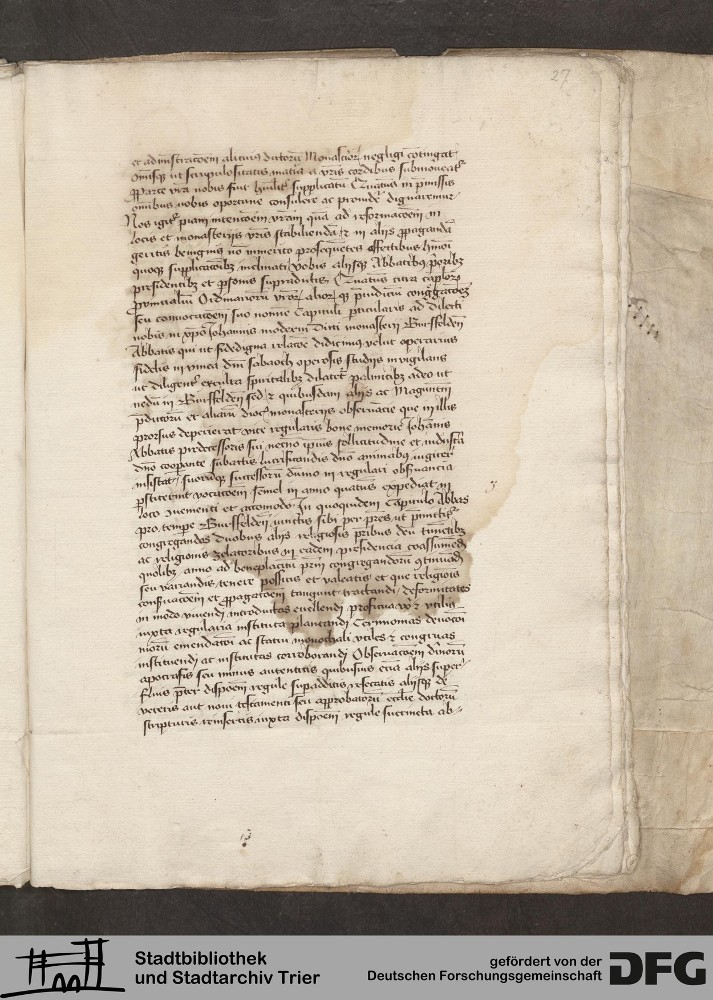 27
et administracōem alicuius dictorū Monasterior̄ negligi cōtingat
omīsq̄ ut scrupulositatis matia a vrīs cordibus submoveatr̄
p̱parte vrā nobis fuit huīlit supplicatū Quatinus in p̄missis
omnibus vobis oportune consulere ac provide dignaremur
Nos igitr̄ piam intencōem vrām quā ad reformacōem in
locis et monasteriis vrīs stabiliendā et in aliis p̱pagandā
geritis benignius nō inmerito prosequētes affectibus hmōi
quoq̄ supplicacōibz inclinati vobis aliisq̄ Abbatibus prioribz
presidentibz et p̱sonis supradictis Quatinus citra caplor̄
provincialiū Ordinarior̄ vrōr̄ alior̄q̄ p̄iudiciū congregacōez
seu convocacōem sub nomine Capituli p̱ticularis ad dilecti
nobis in xpō Johannis moderni Dicti monasterii Bursfelden̄
Abbatis qui ut fidedigna relacōe didicimus velut operarius
fidelis in vinea dnī sabaoth operosis studiis invigilans
ut diligent excultā spiritalibz dilatet palmitibz adeo ut
nedū in Bursfelden̄ sed et quibusdam aliis ac Maguntin̄
p̄dictorū et aliarū dioc̄ monasteriis observācie que in illis
prorsus deperierat vite regularis bone memorie Johānis
Abbatis predecessoris sui necnō ipsius sollicitudine et industriā
dnō coop̱ante subactis lucrificandis dnō animabus iugiter
insistat suorūq̄ successorū dūmo in regulari obs̄vancia
p̱stiterint vocacōem semel in anno quatinus expediat in
loco Avenienti et accomodo In quoquidem Capitulo Abbas
pro tempe Bursfelden̄ iunctis sibi per prēs ut p̄mittitr̄
congregandos duobus aliis religiosis pribus deū timētibz
ac religionis zelatoribus in eadem presidencia coassumēdis
quolibz anno ad beneplacitū prm̄ congregandorū cōtinuādis
seu variandis tenere possitis et valeatis et que religionis
conservacōem et p̱pagacōem tangunt tractandi deformitates
in modo vivendi introductas evellendi proficua vo et utilia
iuxta regularia instituta plantandi Cerimonias devocoī
moriū emendacōi ac statui monachali utiles et congruas
instituendi ac institutas corroborandi Observacōem divinorū
apocrifis seu minus autenticis quibusvis eciā aliis super
fluis p̱ter disposicōem regule supadditis resecatis aliisq̄ de
veteris aut novi testamenti seu approbatorū ecclie doctorū
scripturis reinsertis iuxta disposicōem regule succincta ab
Stadtbibliothek
und Stadtarchiv Trier
gefördert von der
Deutschen Forschungsgemeinschaft
DFG